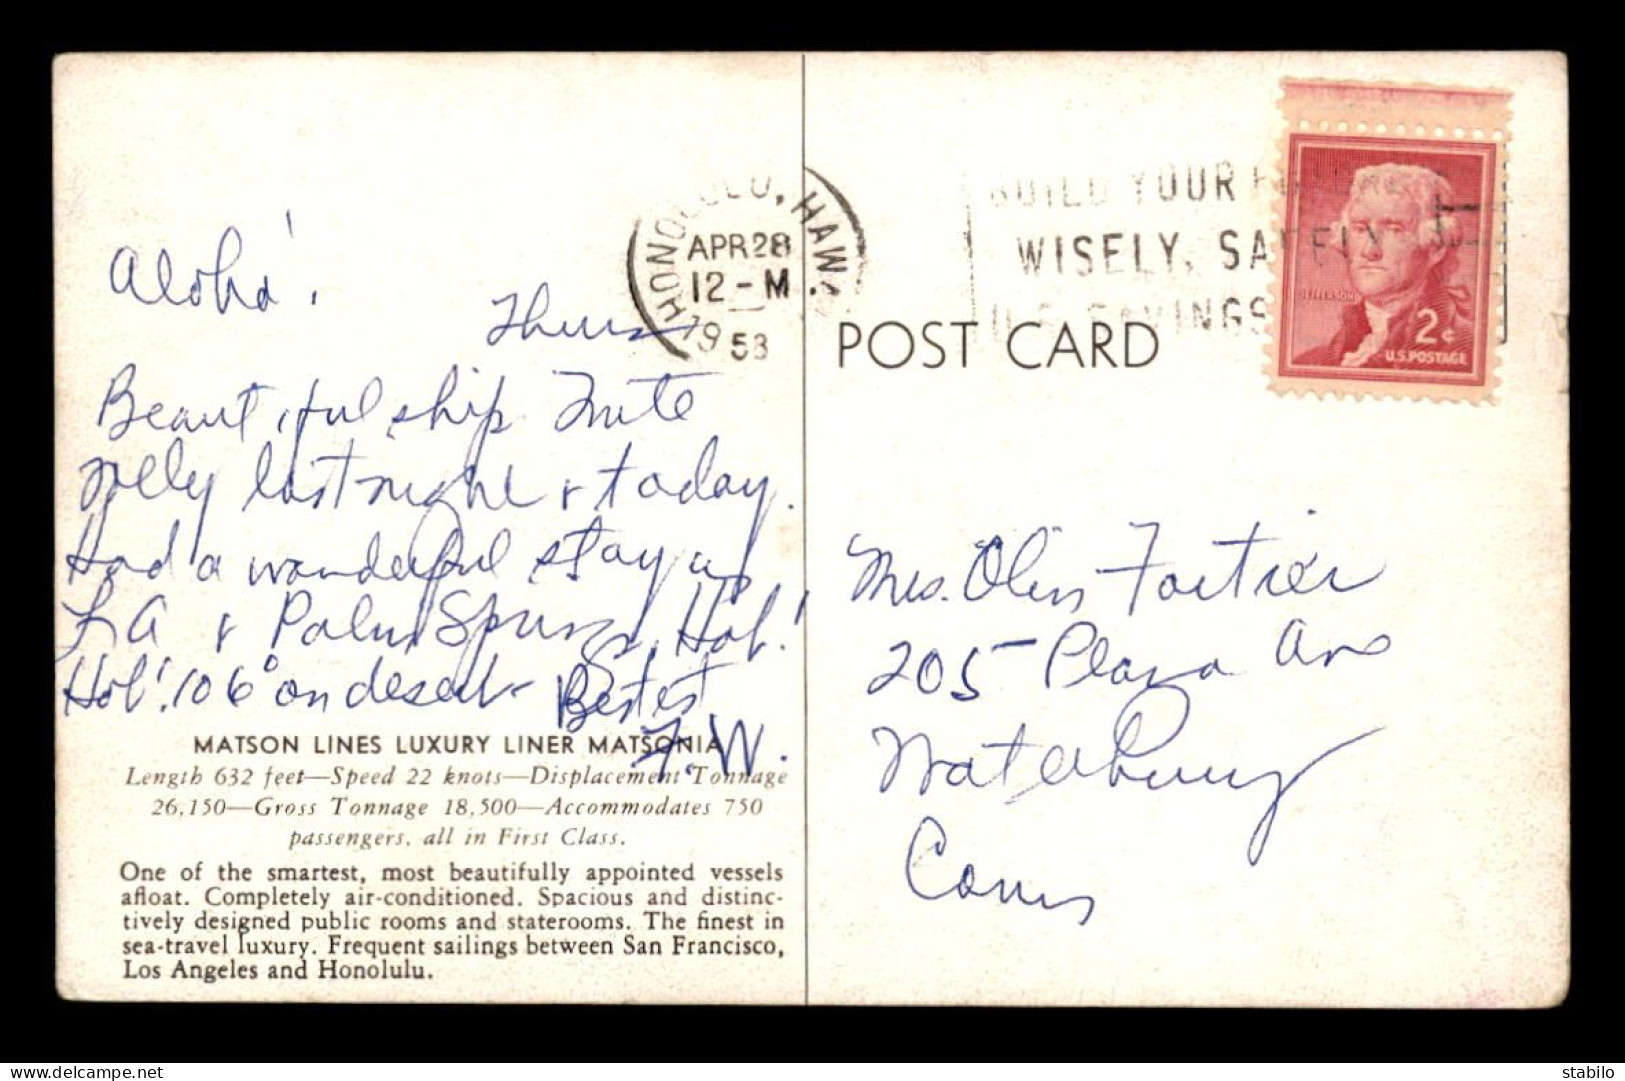 Aloha!
Thurs
Beautiful ship. Quite
rolly last night & today.
Had a wonderful stay in
LA & Palm Springs. Hot!
Hot! 106° on desert. Bestest
F.W.
MATSON LINES LUXURY LINER MATSONIA
Length 632 feet—Speed 22 knots—Displacement Tonnage
26,150—Gross Tonnage 18,500—Accommodates 750
passengers, all in First Class.
One of the smartest, most beautifully appointed vessels
afloat. Completely air-conditioned. Spacious and distinc-
tively designed public rooms and staterooms. The finest in
sea-travel luxury. Frequent sailings between San Francisco,
Los Angeles and Honolulu.
HONOLULU, HAW.
APR 28
12-M
1958
BUILD YOUR FUTURE
WISELY, SAFELY
U.S. SAVINGS
JEFFERSON
2¢
U.S. POSTAGE
POST CARD
Mrs. Olin Fortier
205 Plaza Ave
Waterbury
Conn
delcampe.net
stabilo